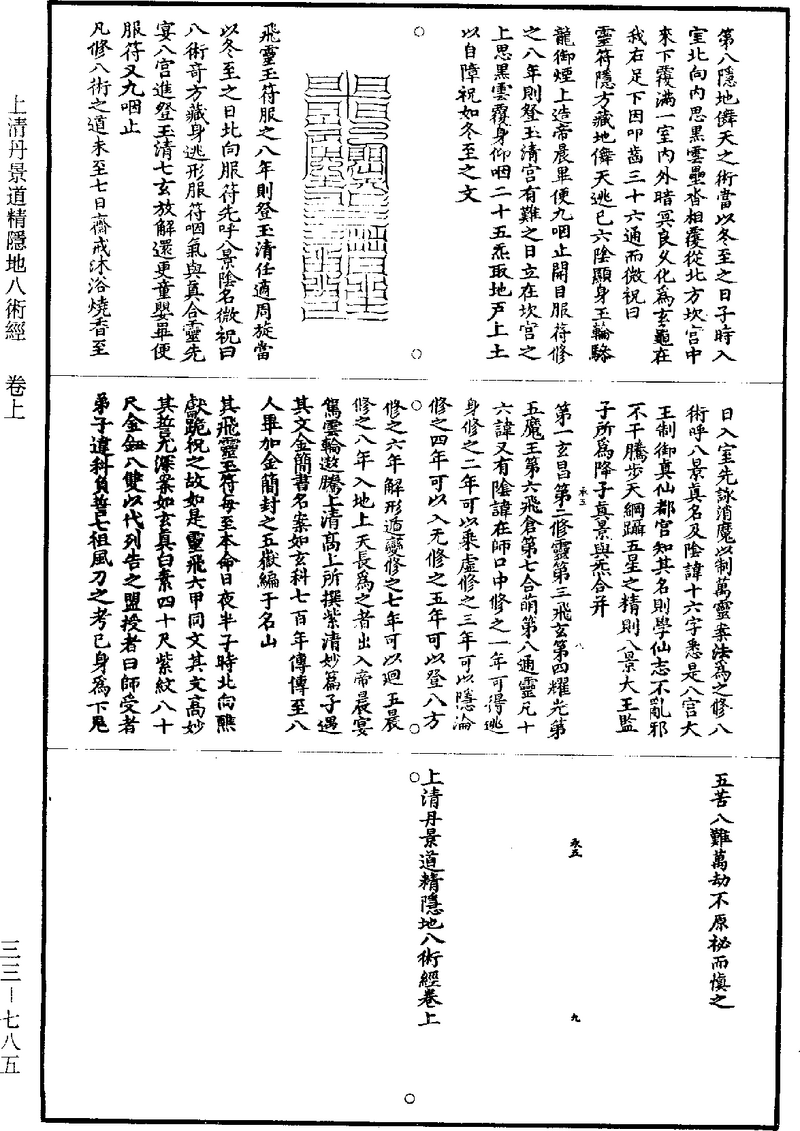 第八隱地儛天之術當以冬至之日子時入
室北向內思黑雲疊沓相覆從北方坎宮中
來下覆滿一室內外暗冥良久化爲玄龜在
我右足下因叩齒三十六通而微祝曰
靈符隱方藏地儛天逃已六陰顯身玉輪駱
龍御煙上造帝晨畢便九咽止開目服符修
之八年則登玉清宮有難之日立在坎宮之
上思黑雲覆身仰咽二十五炁取地戶上土
以自障祝如冬至之文
飛靈玉符服之八年則登玉清任適周旋當
以冬至之日北向服符先呼八景陰名微祝曰
八術奇方藏身逃形服符咽氣與真合靈先
宴八宮進登玉清七玄放解還更童嬰畢便
服符又九咽止
凡修八術之道未至七日齋戒沐浴燒香至
日入室先詠消魔以制萬靈案法爲之修八
術呼八景真名及陰諱十六字悉是八宮大
王制御真仙都官知其名則學仙志不亂邪
不干騰步天綱躡五星之精則八景大王監
子所爲降子真景與炁合并
永五
八
第一玄昌第二修靈第三飛玄第四耀光第
五魔王第六飛倉第七合萌第八通靈凡十
六諱又有陰諱在師口中修之一年可得逃
身修之二年可以乘虛修之三年可以隱淪
修之四年可以入无修之五年可以登八方
修之六年解形遁變修之七年可以迴五晨
修之八年入地上天長爲之者出入帝晨宴
駕雲輪遨騰上清高上所撰紫清妙篇子遇
其文金簡書名案如玄科七百年傳傳至八
人畢加金簡封之五嶽編于名山
其飛靈玉符每至本命日夜半子時北向醮
獻跪祝之故如是靈飛六甲同文其文高妙
其誓尤深案如玄真白素四十尺紫紋八十
尺金鈕八雙以代列告之盟授者曰師受者
弟子違科負誓七祖風刀之考已身爲下鬼
五苦八難萬劫不原祕而慎之
永五
九
上清丹景道精隱地八術經卷上
上清丹景道精隱地八術經 卷上
三三—七八五